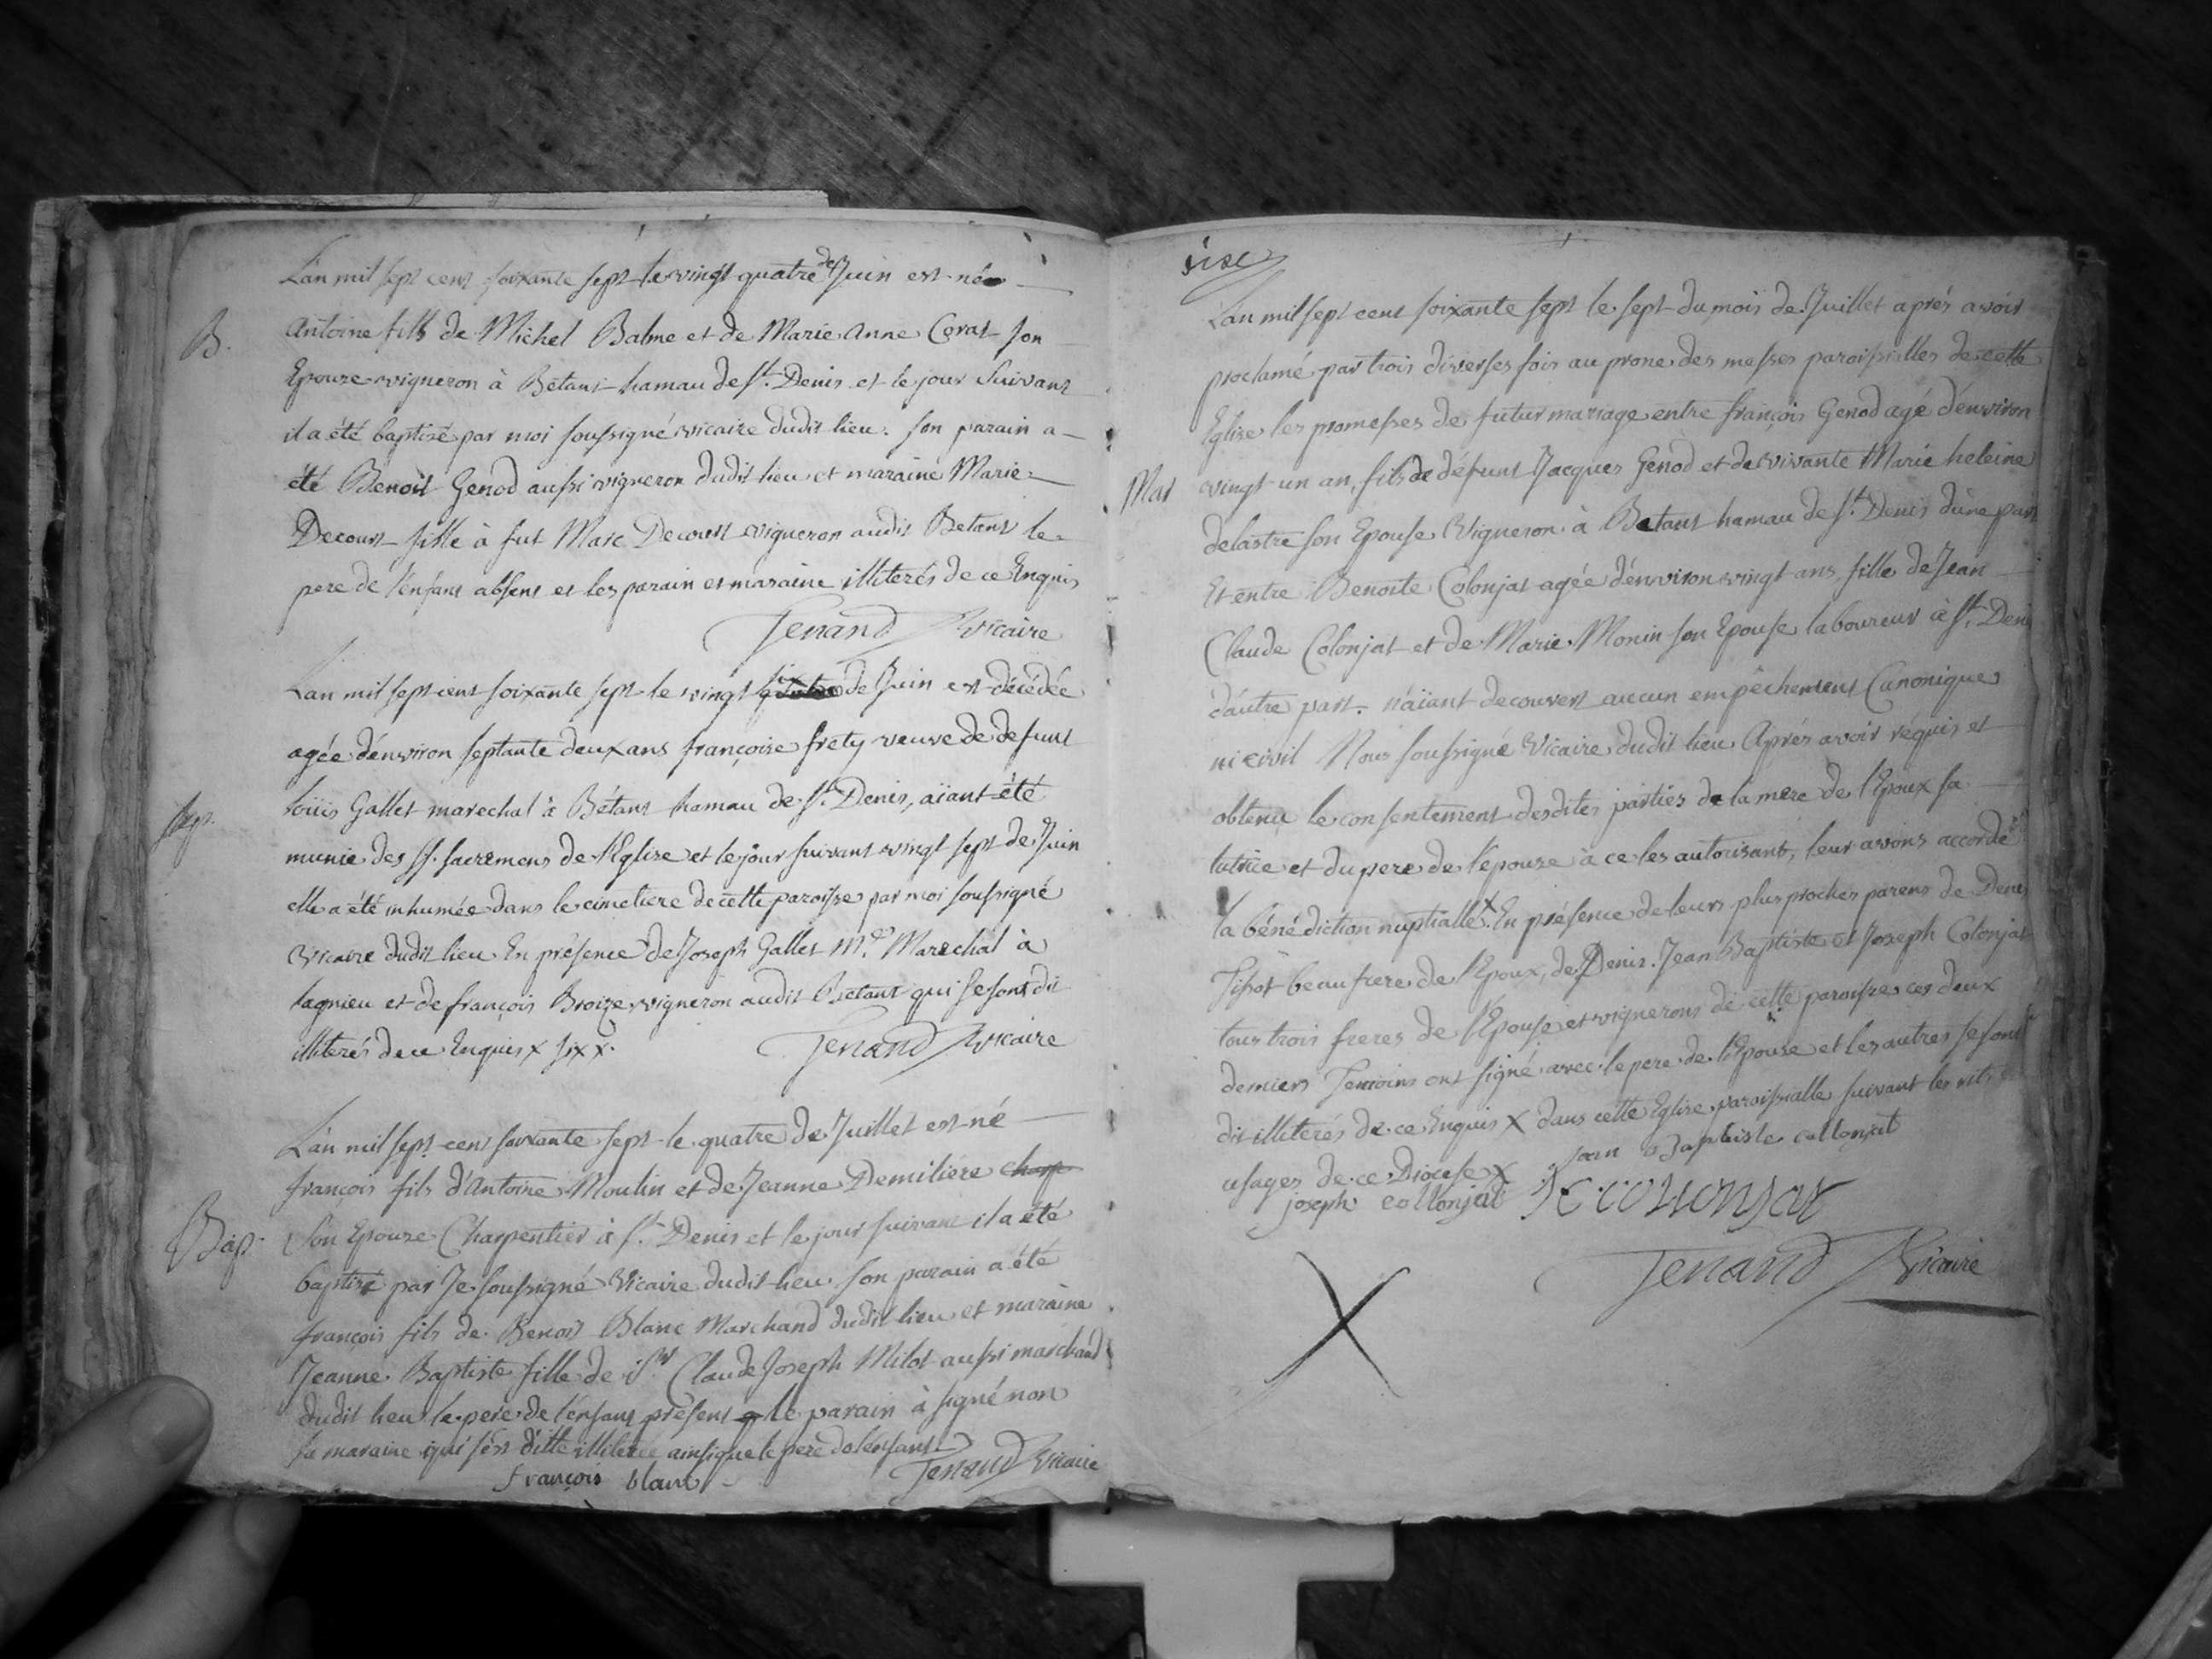 L'an mil sept cent soixante sept le vingt quatre de Juin est né
B. Antoine fils de Michel Balme et de Marie Anne Cerat son
Epouze vigneron à Bétant hamau de St. Denis et le jour suivant
il a été baptizé par moi soussigné vicaire dudit lieu. son parain a
été Benoit Genod aussi vigneron dudit lieu et maraine Marie
Decourt fille à fut Marc Decourt vigneron audit Betant le
pere de l'enfant absent et les parain et maraine illiterés de ce Enquis
Tenand Vicaire
L'an mil sept cent soixante sept le vingt six de Juin est décédée
agée d'environ septante deux ans françoise frety veuve de defunt
Sep. loüis Gallet marechal à Bétant hamau de St. Denis, aïant été
munie des SS. sacremens de l'Eglize et le jour suivant vingt sept de Juin
elle a été inhumée dans le cimetiere de cette paroisse par moi soussigné
Vicaire dudit lieu En présence de Joseph Gallet Md. Marechal à
lagnieu et de françois Broize vigneron audit Bétant qui se sont dit
illiterés de ce Enquis x six x.
Tenand Vicaire
L'an mil sept cent soixante sept le quatre de Juillet est né
françois fils d'Antoine Moulin et de Jeanne Demiliére charp
Bap. Son Epouze Charpentier à St. Denis et le jour suivant il a été
baptisé par Je soussigné Vicaire dudit lieu. son parain a été
françois fils de Benoit Blanc Marchand dudit lieu et maraine
Jeanne Baptiste fille de Sr. Claude Joseph Milot aussi marchand
dudit lieu le pere de l'enfant présent le parain à signé non
la maraine qui s'est ditte illiterée ainsi que le pere de l'enfant
françois blanc
Tenand Vicaire
sixe
L'an mil sept cent soixante sept le sept du mois de Juillet aprés avoir
proclamé par trois diverses fois au prone des messes paroissialles de cette
Eglise les promesses de futur mariage entre françois Genod agé d'environ
Mar vingt un an, fils de défunt Jacques Genod et de vivante Marie heleine
delastre son Epouse Vigneron à Betant hamau de St. Denis d'une part
Et entre Benoite Colonjat agée d'environ vingt ans fille de Jean
Claude Colonjat et de Marie Monin son Epouse laboureur à St. Denis
d'autre part. n'aïant decouvert aucun empêchement Canonique
ni civil Nous soussigné Vicaire dudit lieu Aprés avoir réquis et
obtenu le consentement desdites parties de la mere de l'Epoux sa
tutrice et du pere de l'épouze à ce les autorisant, leur avons accordé
la bénédiction nuptialle x En présence de leurs plus proches parens de Denis
beaufrere de l'Epoux, de Denis. Jean Baptiste et Joseph Colonjat
tous trois freres de l'Epouse et vignerons de cette paroisse ces deux
derniers Temoins ont signé avec le pere de l'Epouze et les autres se sont
dit illiterés de ce Enquis x dans cette Eglise paroissialle suivant les rits
usages de ce Diocese x Jean Baptiste collonjat
joseph collonjat J C collonjat
Tenand Vicaire